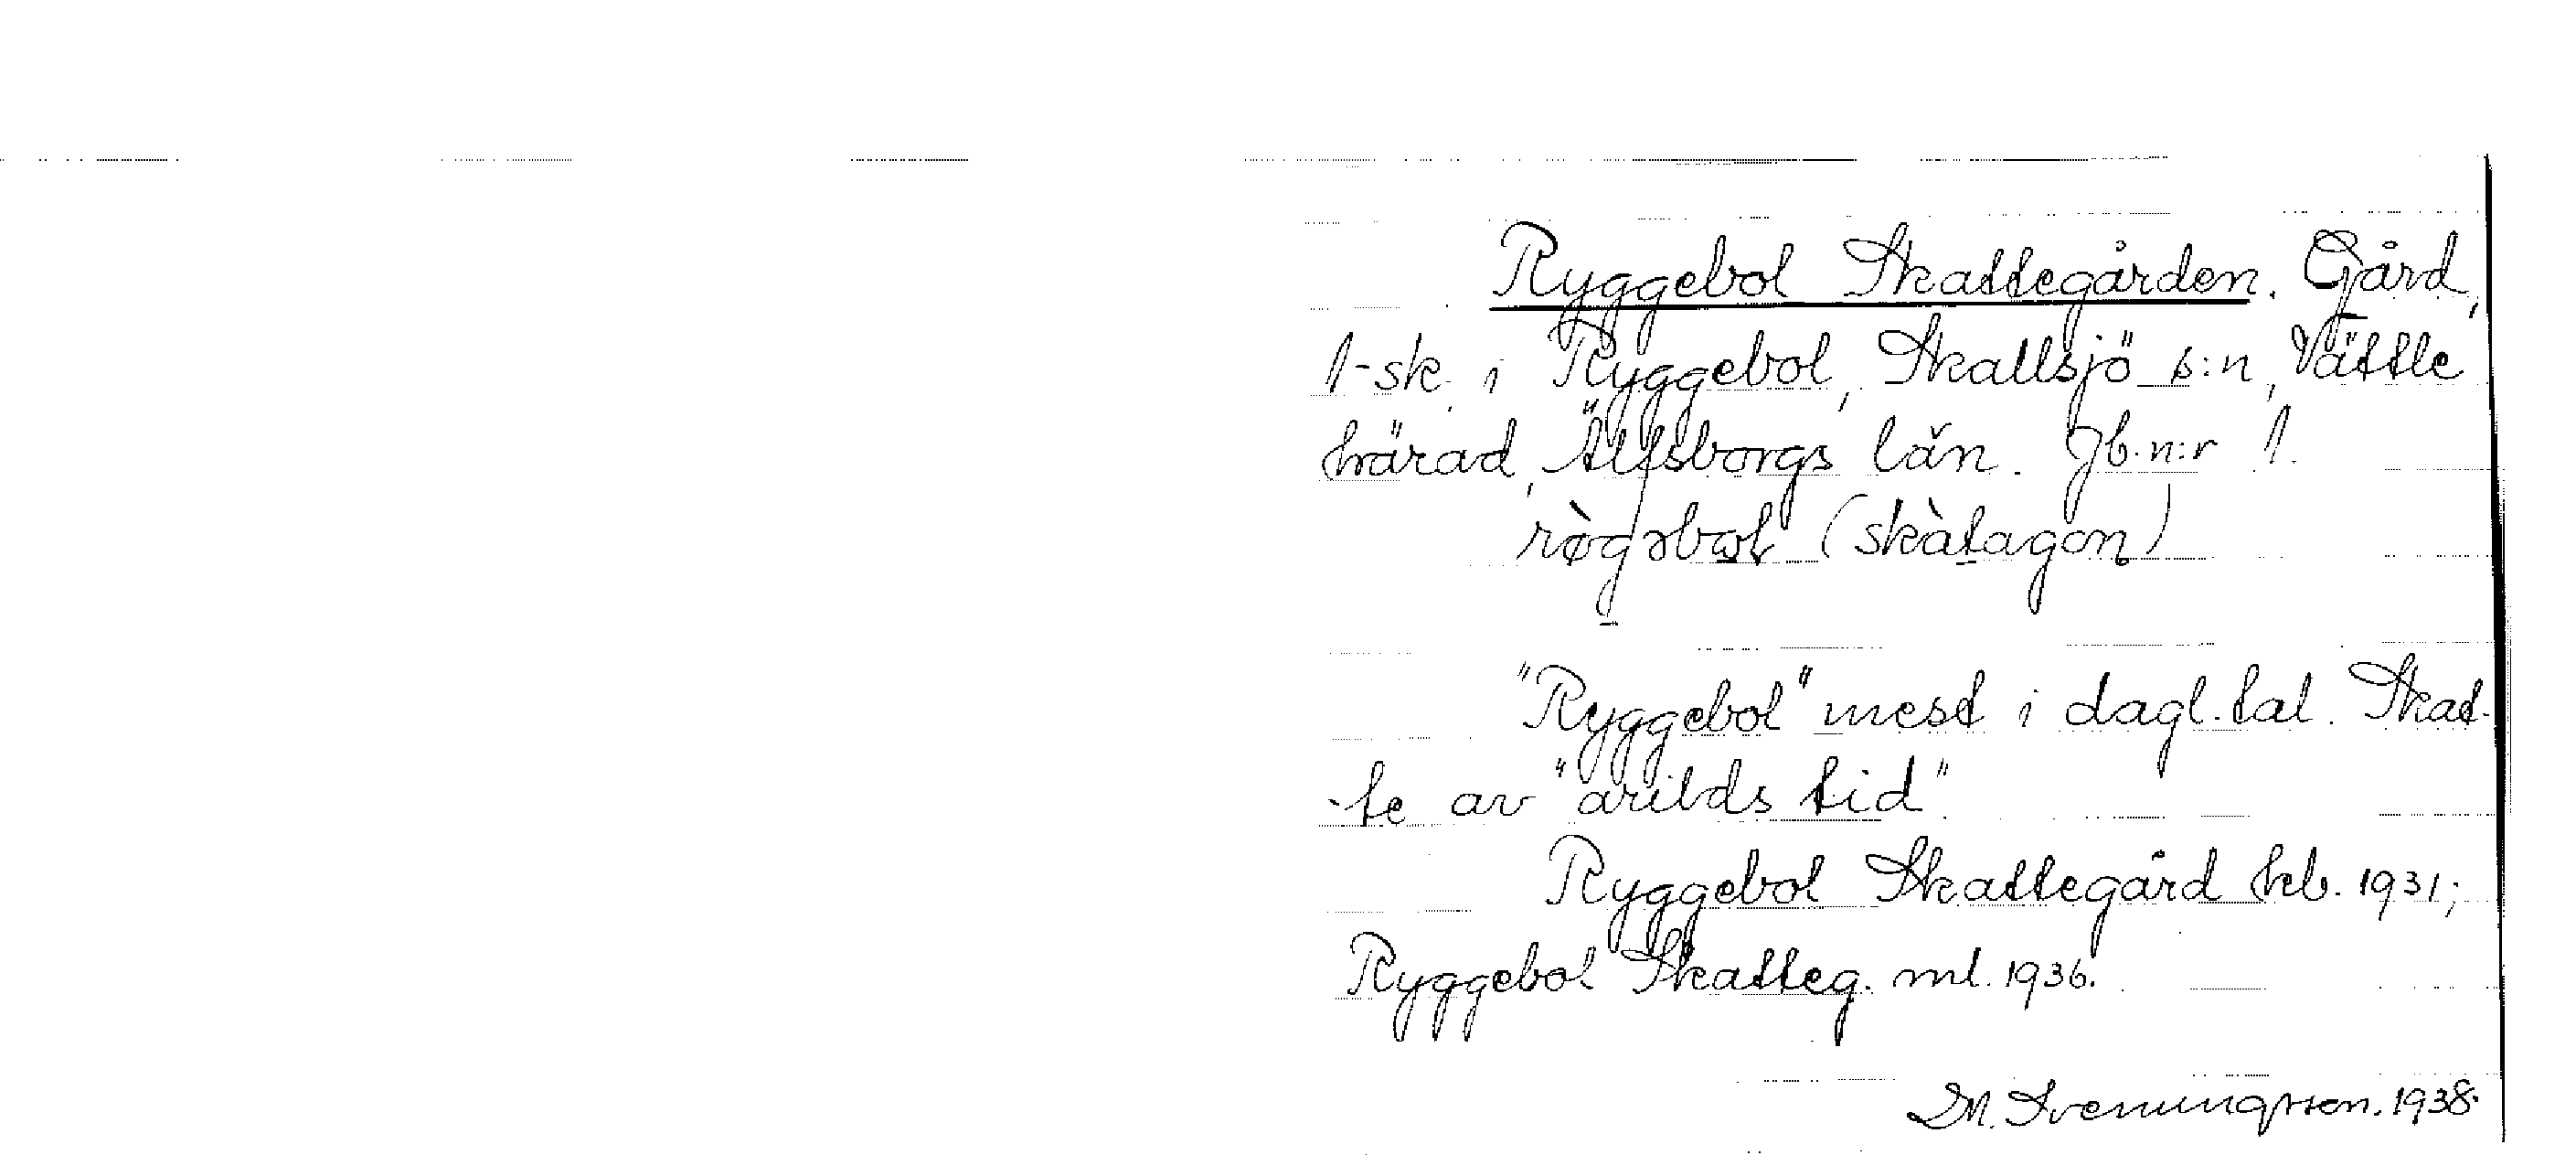 Ryggebol Skattegården. Gård,
1-sk. i Ryggebol, Skallsjö s:n, Vättle
härad, Älfsborgs län. Jb.n:r 1.
rø̀gəbol (skàtagon)
"Ryggebol" mest i dagl. tal. Skat-
-te av "arilds tid".
Ryggebol Skattegård hb. 1931;
Ryggebol Skatteg. ml. 1936.
M. Svenungsson. 1938.